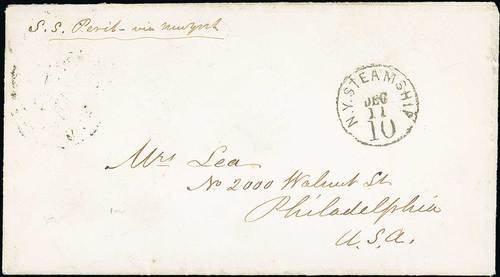 S.S. Perit - via Newyork
N.Y. STEAMSHIP
DEC
11
10
Mrs Lea
No 2000 Walnut St
Philadelphia
U.S.A.